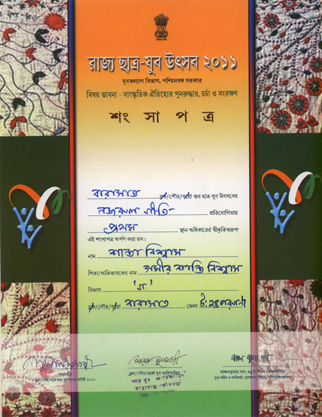 রাজ্য ছাত্র-যুব উৎসব ২০১১
যুবকল্যাণ বিভাগ, পশ্চিমবঙ্গ সরকার
বিষয় ভাবনা - সাংস্কৃতিক ঐতিহ্যের পুনরুদ্ধার, চর্চা ও সংরক্ষণ
শংসাপত্র
বারাসাত ব্লক/পৌর/ স্তর ছাত্র যুব উৎসবের
নজরুল গীতি প্রতিযোগিতায়
প্রথম স্থান অধিকারের স্বীকৃতিস্বরূপ
এই শংসাপত্র অর্পণ করা হল।
নাম শান্তা বিশ্বাস
পিতা/অভিভাবকের নাম সমীর কান্তি বিশ্বাস
বিভাগ 'গ'
ব্লক/পৌর/ বারাসাত জেলা উঃ ২৪ পরগনা